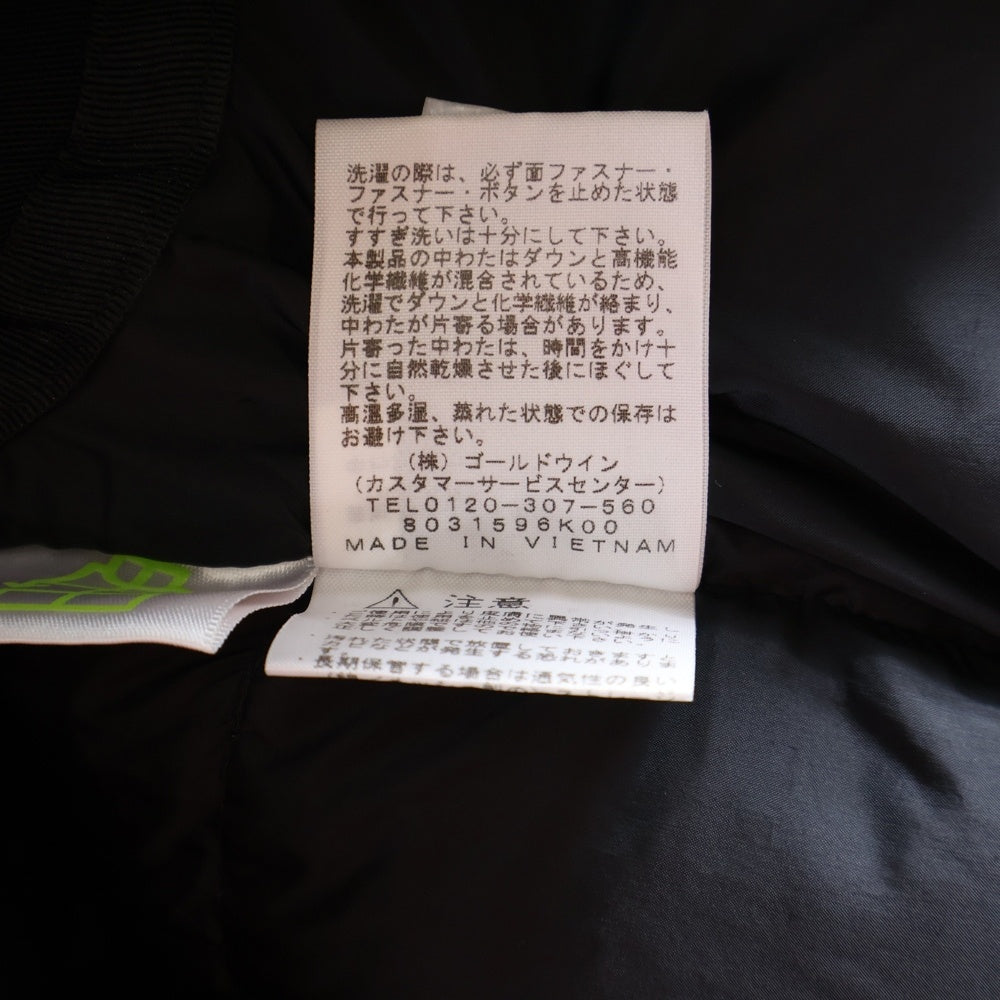 洗濯の際は、必ず面ファスナー・
ファスナー・ボタンを止めた状態
で行って下さい。
すすぎ洗いは十分にして下さい。
本製品の中わたはダウンと高機能
化学繊維が混合されているため、
洗濯でダウンと化学繊維が絡まり、
中わたが片寄る場合があります。
片寄った中わたは、時間をかけ十
分に自然乾燥させた後にほぐして
下さい。
高温多湿、蒸れた状態での保存は
お避け下さい。
(株)ゴールドウイン
(カスタマーサービスセンター)
TEL0120-307-560
8031596K00
MADE IN VIETNAM
注意
汚れた状態で放置しておきますと
長期保管する場合は通気性の良い